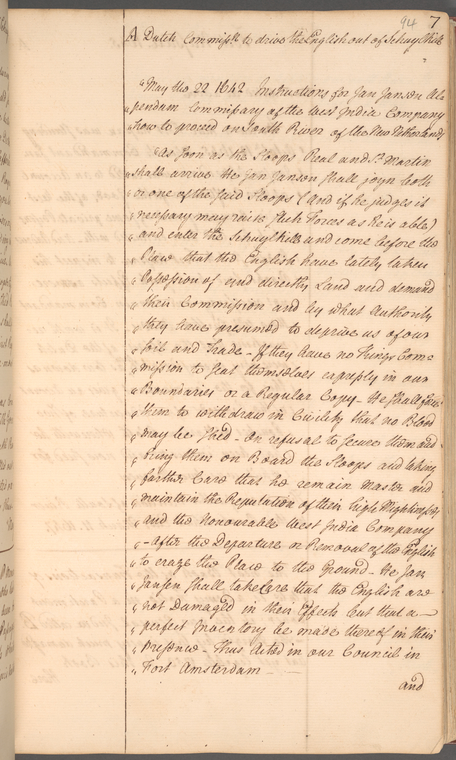 94 7
A Dutch Commissn. to drive the English out of Schuylkill
"May the 22 1642 Instructions for Jan Janson
pendum Commissary of the West India Company
"how to proceed on South River of the New Netherlands
"As soon as the Sloops Real and St. Martin
"shall arrive He Jan Janson shall joyn both
"or one of the said Sloops (and if he judges it
"necessary may raise such Forces as he is able)
"and enter the Schuylkill and come before the
"Place that the English have lately taken
"Possession of and directly Land and demand
"their Commission and by what Authority
"they have presumed to deprive us of our
"Soil and Trade - If they have no Kings Com=
"mission to seat themselves expressly in our
"Boundaries or a Regular Copy - He shall
"them to withdraw in Civility that no Blood
"may be shed - On refusal to secure them and
"bring them on Board the Sloops and taking
"farther Care that he remain Master and
"maintain the Reputation of their high Mightinesses
"and the Honourable West India Company
"- After the Departure or Removal of the English
"to eraze the Place to the Ground - He Jan
"Jansen shall take Care that the English are
"not Damaged in their Effects but that a
"perfect Inventory be made thereof in their
"Presence - Thus Acted in our Council in
"Fort Amsterdam
and